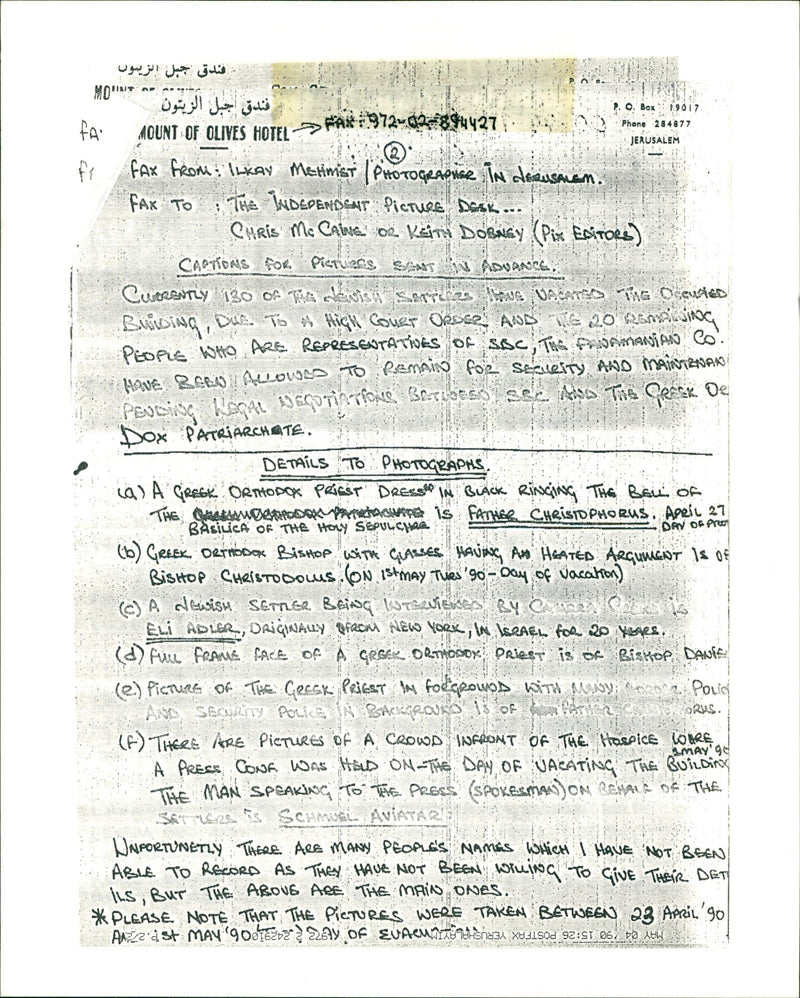 فندق جبل الزيتون
فندق جبل الزيتون
P. O. Box 19017
FAX: 972-02-894427
MOUNT OF OLIVES HOTEL
Phone 284877
JERUSALEM
2
FAX FROM: ILKAY MEHMET / PHOTOGRAPHER IN JERUSALEM.
FAX TO : THE INDEPENDENT PICTURE DESK...
CHRIS McCAINE OR KEITH DOBNEY (PIX EDITORS)
CAPTIONS FOR PICTURES SENT IN ADVANCE.
CURRENTLY 130 OF THE JEWISH SETTLERS HAVE VACATED THE OCCUPIED
BUILDING, DUE TO A HIGH COURT ORDER AND THE 20 REMAINING
PEOPLE WHO ARE REPRESENTATIVES OF SBC, THE PANAMANIAN CO.
HAVE BEEN ALLOWED TO REMAIN FOR SECURITY AND MAINTENAN
PENDING LEGAL NEGOTIATIONS BETWEEN SBC AND THE GREEK OR
DOX PATRIARCHATE.
DETAILS TO PHOTOGRAPHS.
(a) A GREEK ORTHODOX PRIEST DRESSED IN BLACK RINGING THE BELL OF
THE BASILICA OF THE HOLY SEPULCHRE IS FATHER CHRISTOPHORUS. APRIL 27
DAY OF
(b) GREEK ORTHODOX BISHOP WITH GLASSES HAVING AN HEATED ARGUMENT IS OF
BISHOP CHRISTODOLUS. (ON 1st MAY TUES '90 - DAY OF VACATION)
(c) A JEWISH SETTLER BEING INTERVIEWED BY CAMERA IS
ELI ADLER, ORIGINALLY FROM NEW YORK, IN ISRAEL FOR 20 YEARS.
(d) FULL FRAME FACE OF A GREEK ORTHODOX PRIEST IS OF BISHOP DANIE
(e) PICTURE OF THE GREEK PRIEST IN FORGROUND WITH MANY BORDER POLIC
AND SECURITY POLICE IN BACKGROUND IS OF FATHER
(f) THERE ARE PICTURES OF A CROWD INFRONT OF THE HOSPICE WERE
1 MAY '90
A PRESS CONF WAS HELD ON THE DAY OF VACATING THE BUILDING
THE MAN SPEAKING TO THE PRESS (SPOKESMAN) ON BEHALF OF THE
SETTLERS IS SCHMUEL AVIATAR.
UNFORTUNETLY THERE ARE MANY PEOPLE'S NAMES WHICH I HAVE NOT BEEN
ABLE TO RECORD AS THEY HAVE NOT BEEN WILLING TO GIVE THEIR DET
ILS, BUT THE ABOVE ARE THE MAIN ONES.
* PLEASE NOTE THAT THE PICTURES WERE TAKEN BETWEEN 23 APRIL '90
AN 1st MAY '90 DAY OF EVACUATION
MAY 04 '90 15:26 POSTFAX YERUSHALAYIM